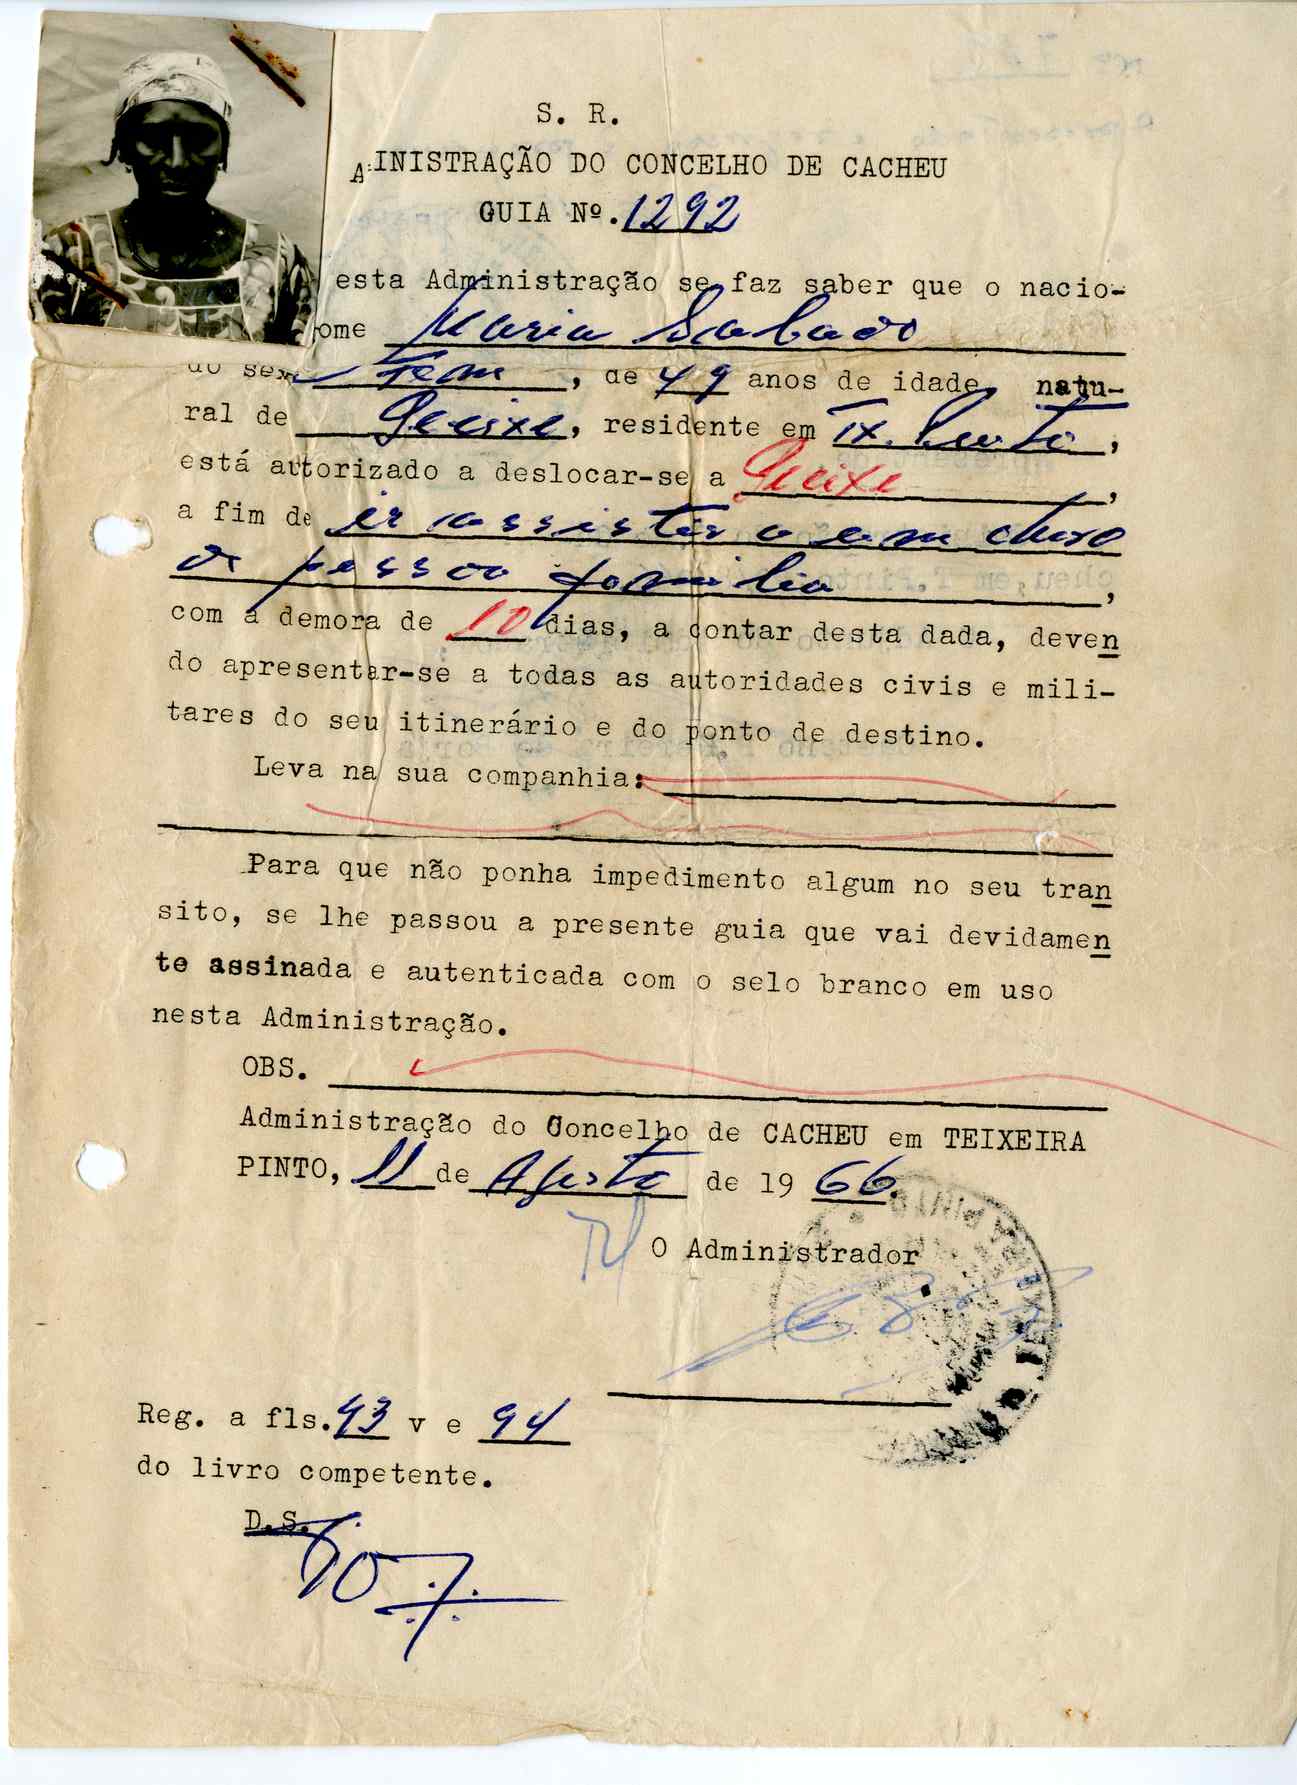 S. R.
INISTRAÇÃO DO CONCELHO DE CACHEU
GUIA Nº. 1292
esta Administração se faz saber que o nacio-
ome Maria Sabado
do sex Fem, de 49 anos de idade, natu-
ral de Peeixe, residente em Tx. Pinto,
está autorizado a deslocar-se a Peeixe,
a fim de ir assistir a um choro
de pessoa familia,
com a demora de 10 dias, a contar desta dada, deven
do apresentar-se a todas as autoridades civis e mili-
tares do seu itinerário e do ponto de destino.
Leva na sua companhia:
Para que não ponha impedimento algum no seu tran
sito, se lhe passou a presente guia que vai devidamen
te assinada e autenticada com o selo branco em uso
nesta Administração.
OBS.
Administração do Concelho de CACHEU em TEIXEIRA
PINTO, 11 de Agosto de 19 66.
O Administrador
Reg. a fls. 93 v e 94
do livro competente.
D.S.